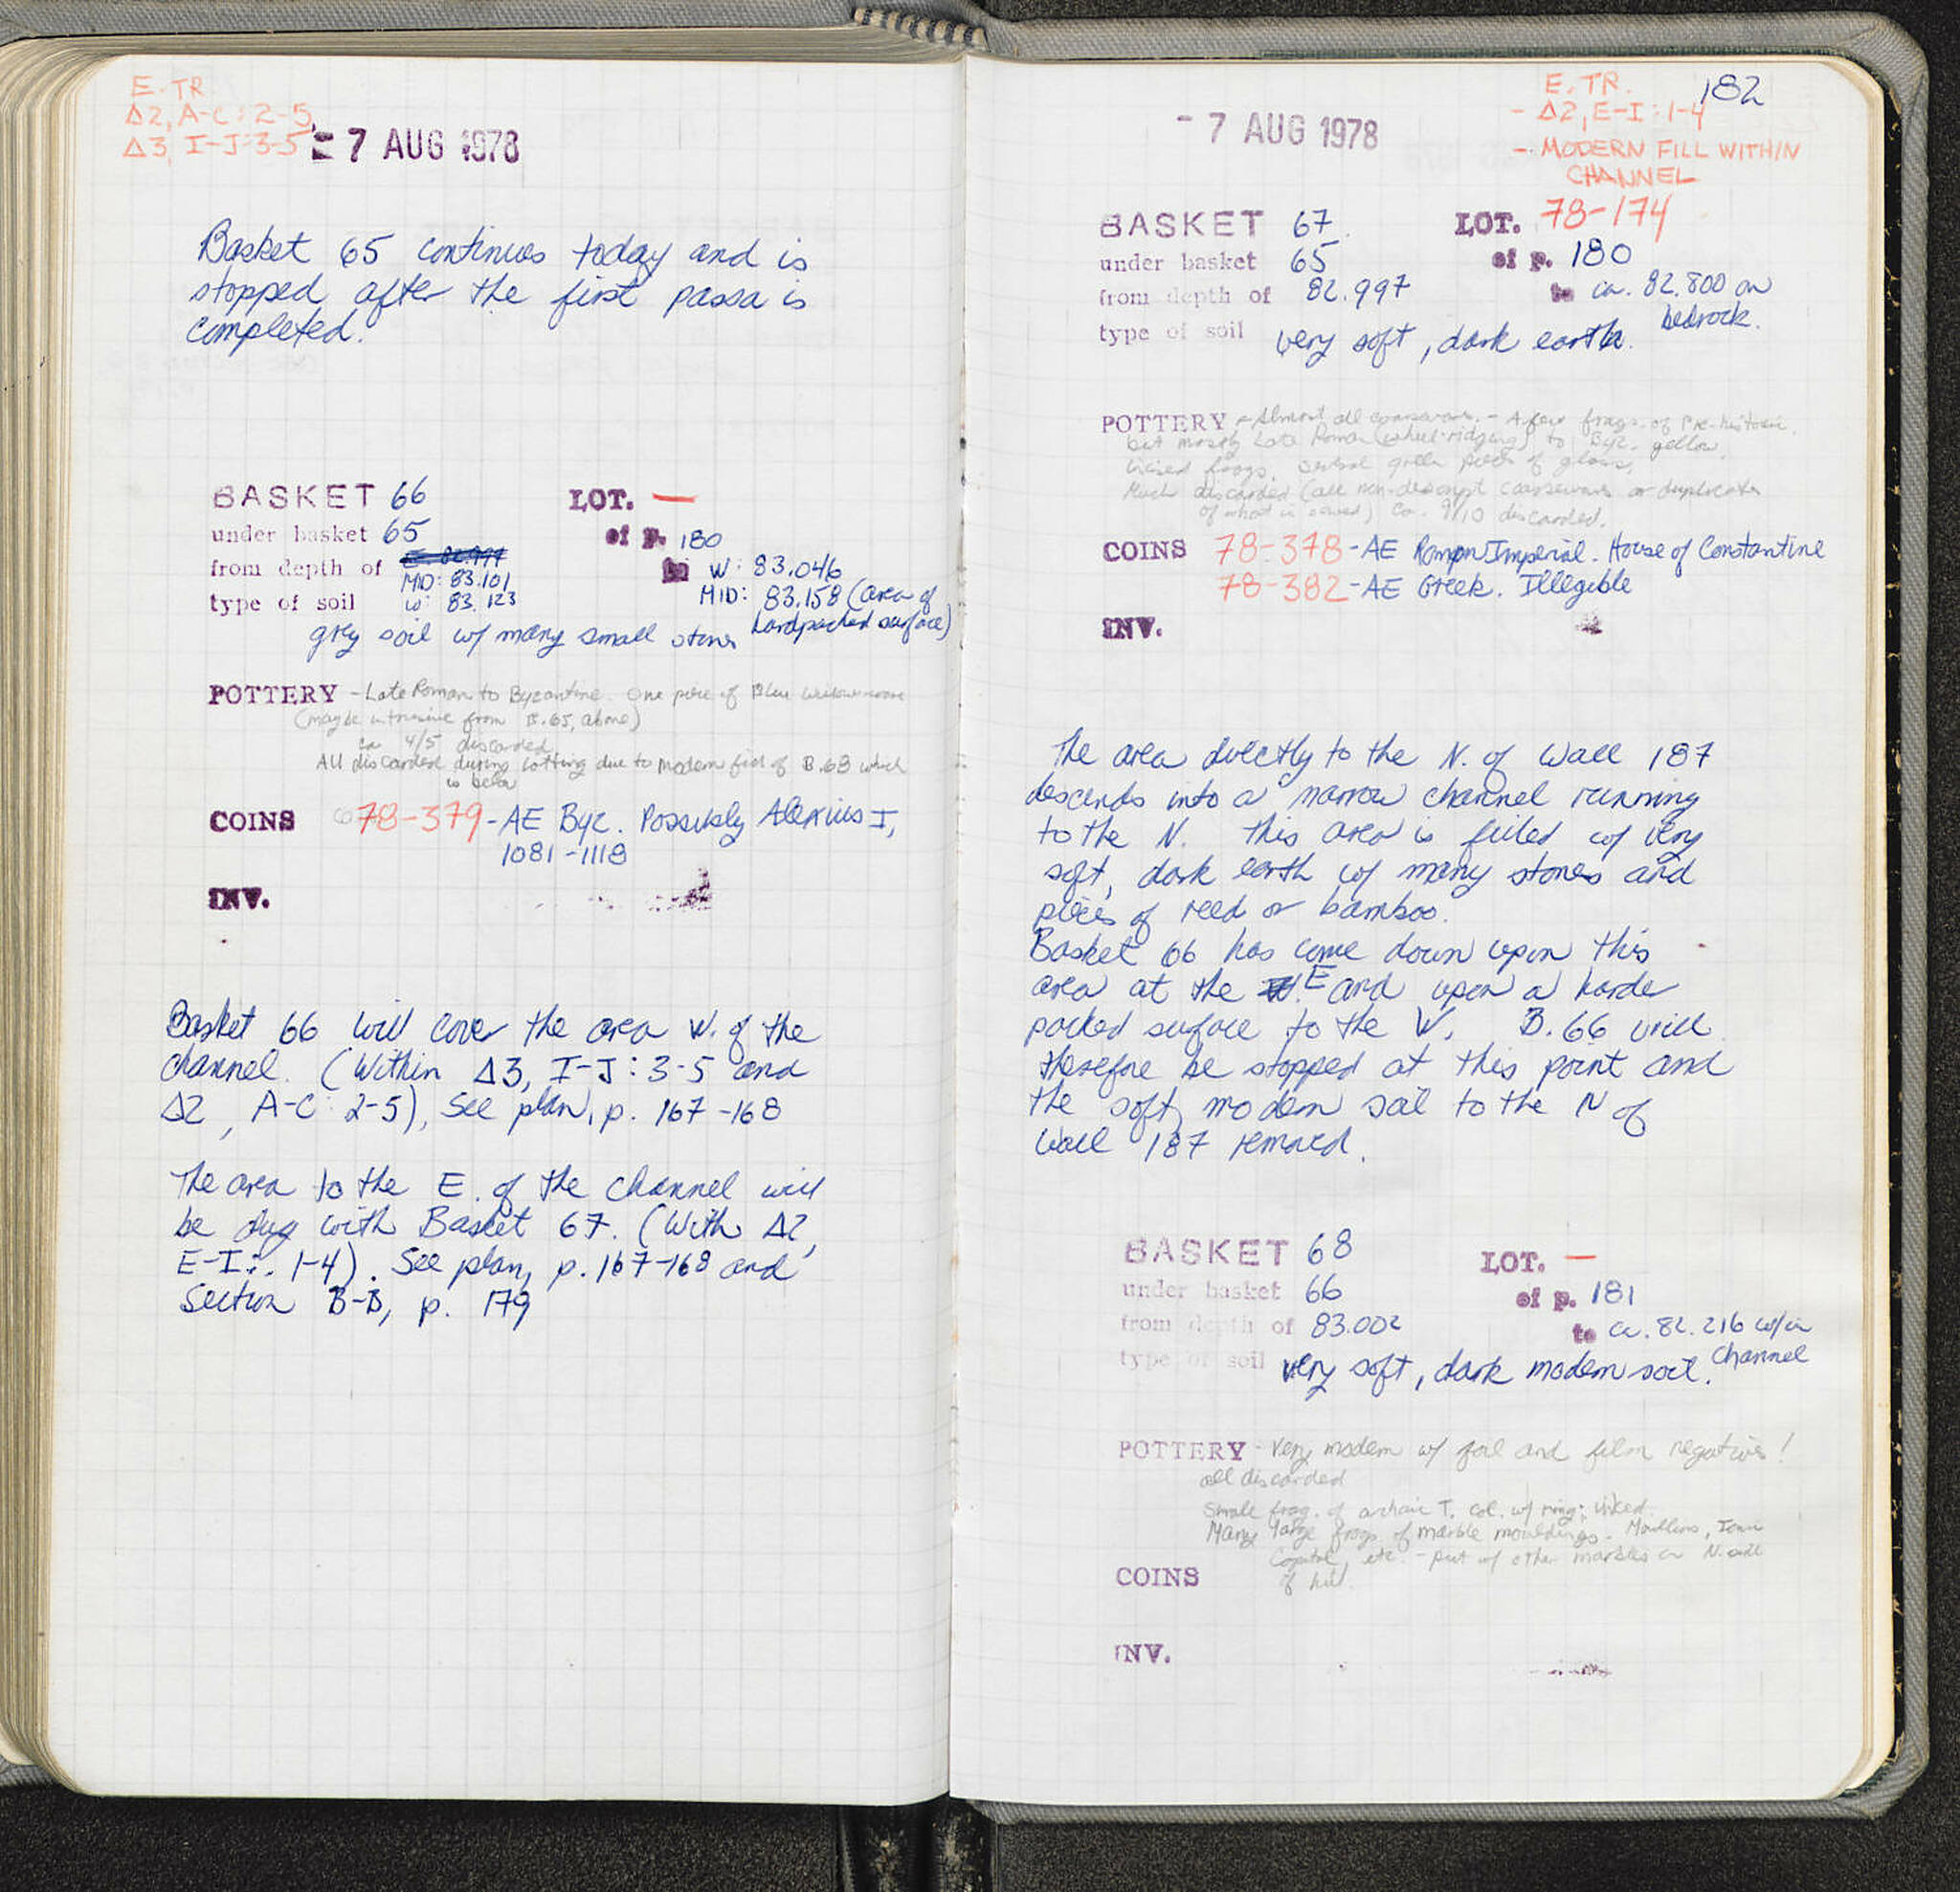 E. TR.
Δ2, A-C: 2-5,
Δ3, I-J: 3-5
- 7 AUG 1978
Basket 65 continues today and is
stopped after the first passa is
completed.
BASKET 66 LOT. —
under basket 65 of p. 180
from depth of MID: 83.101 to W: 83.046
W: 83.123 MID: 83.158 (area of
hardpacked surface)
type of soil grey soil w/ many small stones
POTTERY - Late Roman to Byzantine. One piece of Blue Willow ware
(maybe intrusive from B.65, above)
ca 4/5 discarded
All discarded during lotting due to modern find of B.68 which
is below
COINS 78-379 - AE Byz. Possibly Alexius I,
1081-1118
INV.
Basket 66 will cover the area W. of the
channel. (Within Δ3, I-J: 3-5 and
Δ2, A-C: 2-5), See plan, p. 167-168
The area to the E. of the channel will
be dug with Basket 67. (With Δ2,
E-I: 1-4). See plan, p. 167-168 and
Section B-B, p. 179
182
E. TR.
- Δ2, E-I: 1-4
- MODERN FILL WITHIN
CHANNEL
- 7 AUG 1978
BASKET 67 LOT. 78-174
under basket 65 of p. 180
from depth of 82.997 to ca. 82.800 on
bedrock.
type of soil very soft, dark earth.
POTTERY - Almost all coarseware. - A few frags. of Pre-historic.
but mostly Late Roman (wheel-ridging) to Byz. yellow
frags. several green pieces of glass.
Much discarded (all non-descript coarseware or duplicates
of what is saved) Ca. 9/10 discarded.
COINS 78-378 - AE Roman Imperial. House of Constantine
78-382 - AE Greek. Illegible
INV.
The area directly to the N. of Wall 187
descends into a narrow channel running
to the N. This area is filled w/ very
soft, dark earth w/ many stones and
pieces of reed or bamboo.
Basket 66 has come down upon this
area at the E and upon a harder
packed surface to the W. B. 66 will
therefore be stopped at this point and
the soft, modern soil to the N of
Wall 187 removed.
BASKET 68 LOT. —
under basket 66 of p. 181
from depth of 83.002 to ca. 82.216 w/in
channel
type of soil very soft, dark modern soil.
POTTERY - Very modern w/ foil and film negatives!
all discarded
Small frag. of archaic T. Col. w/ ring;
Many large frags. of marble mouldings. Ionic
Capital, etc. - put w/ other marbles on N. side
of hill.
COINS
INV.